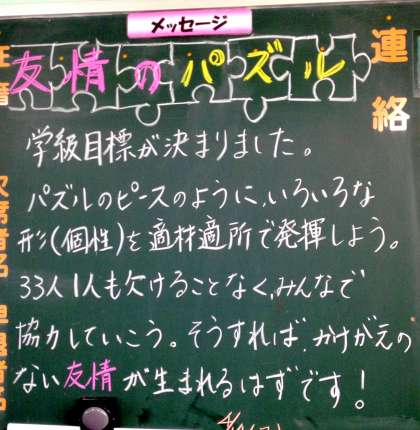 メッセージ
友情のパズル
連絡
学級目標が決まりました。
パズルのピースのように、いろいろな
形(個性)を適材適所で発揮しよう。
33人1人も欠けることなく、みんなで
協力していこう。そうすれば、かけがえの
ない友情が生まれるはずです!